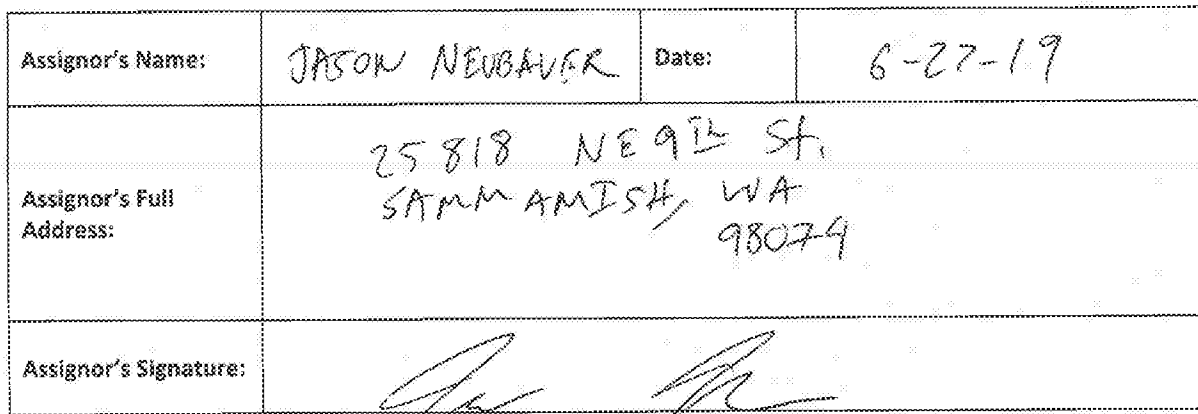 Assignor's Name: JASON NEUBAUER Date: 6-27-19
Assignor's Full Address: 25818 NE 9TH St.
SAMMAMISH, WA
98074
Assignor's Signature: